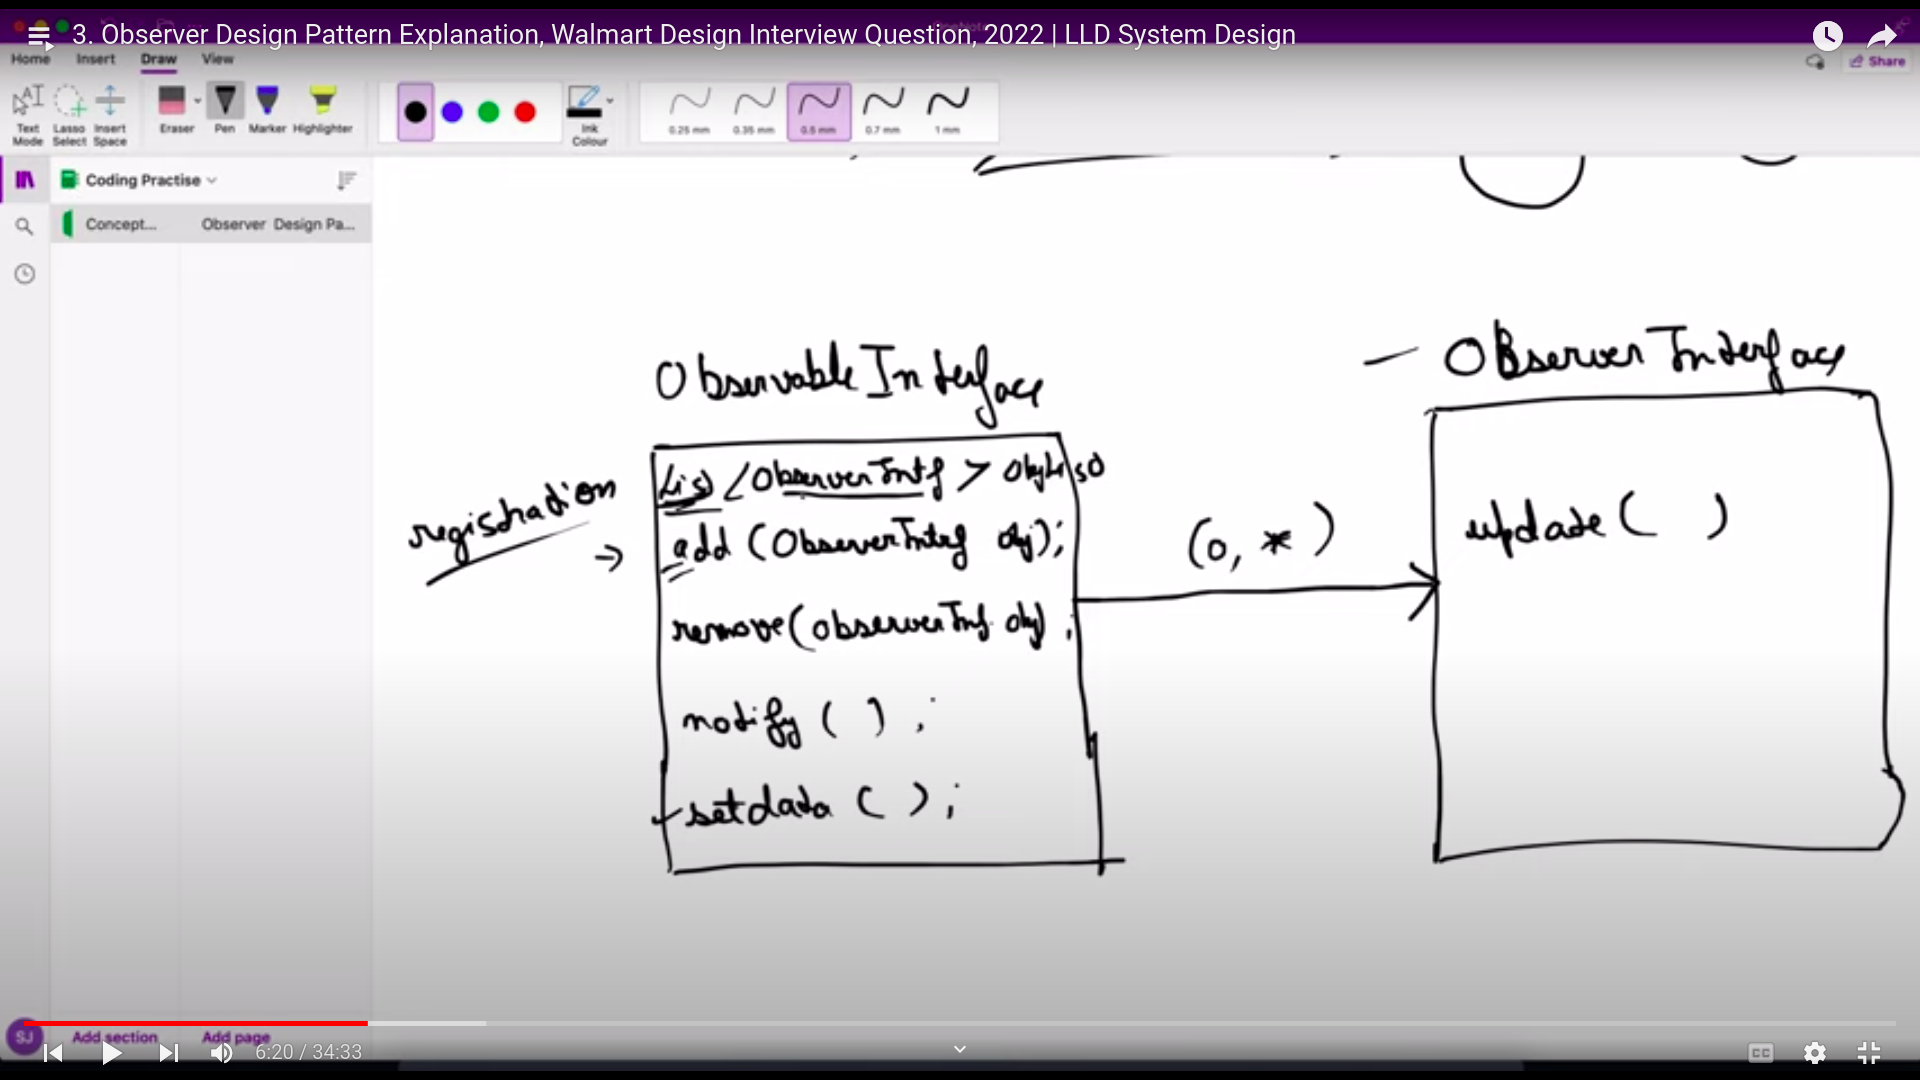 3. Observer Design Pattern Explanation, Walmart Design Interview Question, 2022 | LLD System Design
Home Insert Draw View
Share
Text Mode
Lasso Select
Insert Space
Eraser
Pen
Marker
Highlighter
Ink Colour
0.25 mm
0.35 mm
0.5 mm
0.7 mm
1 mm
Coding Practise
Concept...
Observer Design Pa...
Observable Interface
Observer Interface
registration
List <ObserverIntf > objList
add (ObserverIntrf obj);
remove(observerInf. obj) ;
notify ( ) ;
setdata ( ) ;
(0, *)
update ( )
SJ
Add section
Add page
6:20 / 34:33
CC